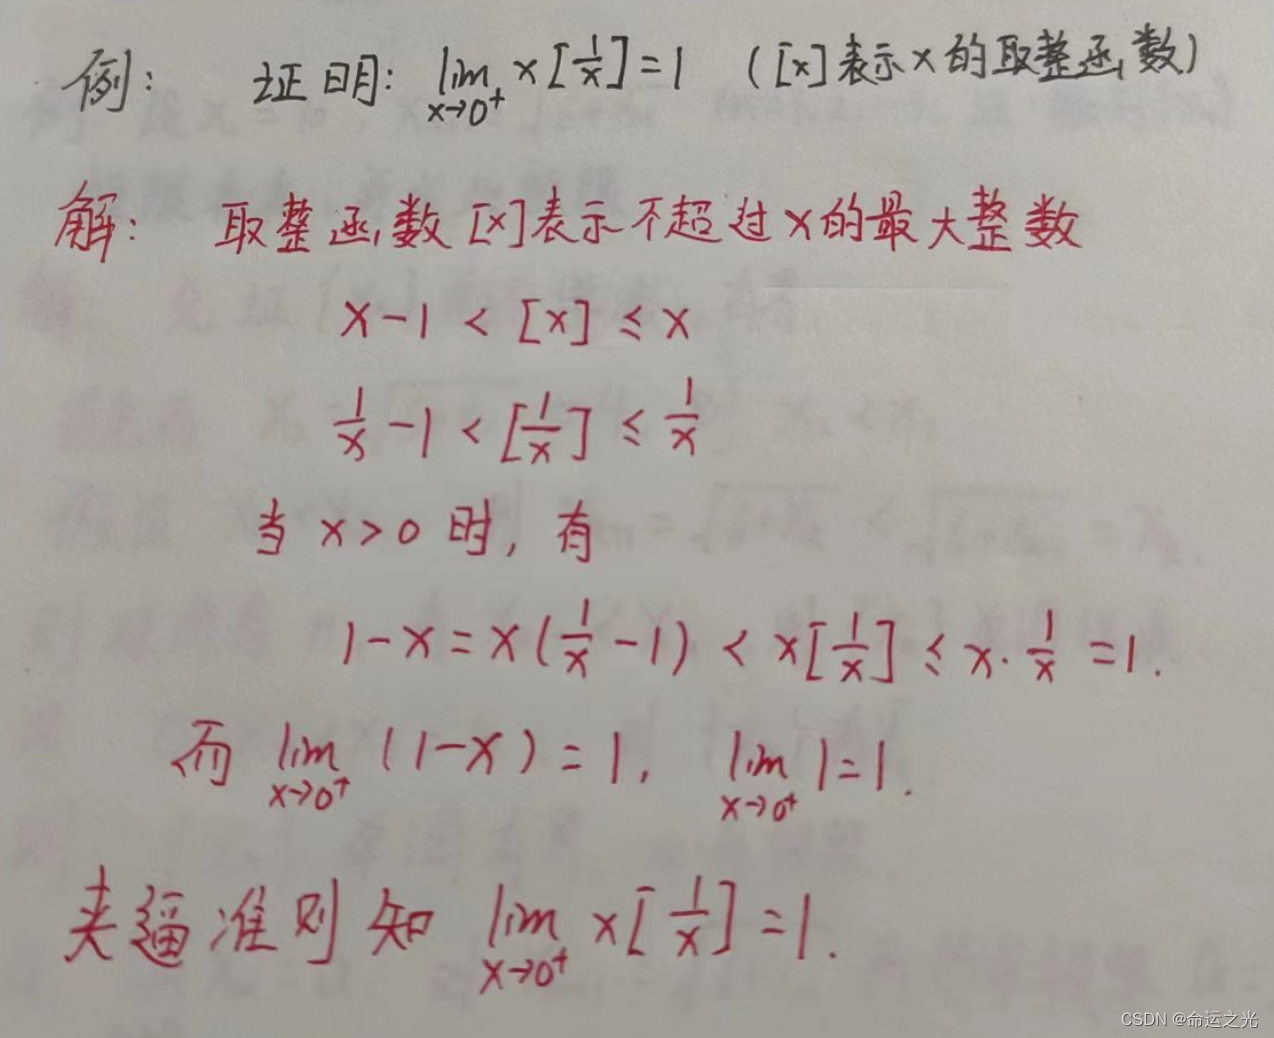 例： 证明： lim x→0⁺ x[1/x]=1 （[x]表示x的取整函数）
解： 取整函数[x]表示不超过x的最大整数
x-1 < [x] ≤ x
1/x -1 < [1/x] ≤ 1/x
当 x>0 时，有
1-x = x(1/x -1) < x[1/x] ≤ x·1/x =1.
而 lim x→0⁺ (1-x)=1, lim x→0⁺ 1=1.
夹逼准则知 lim x→0⁺ x[1/x]=1.
CSDN @命运之光